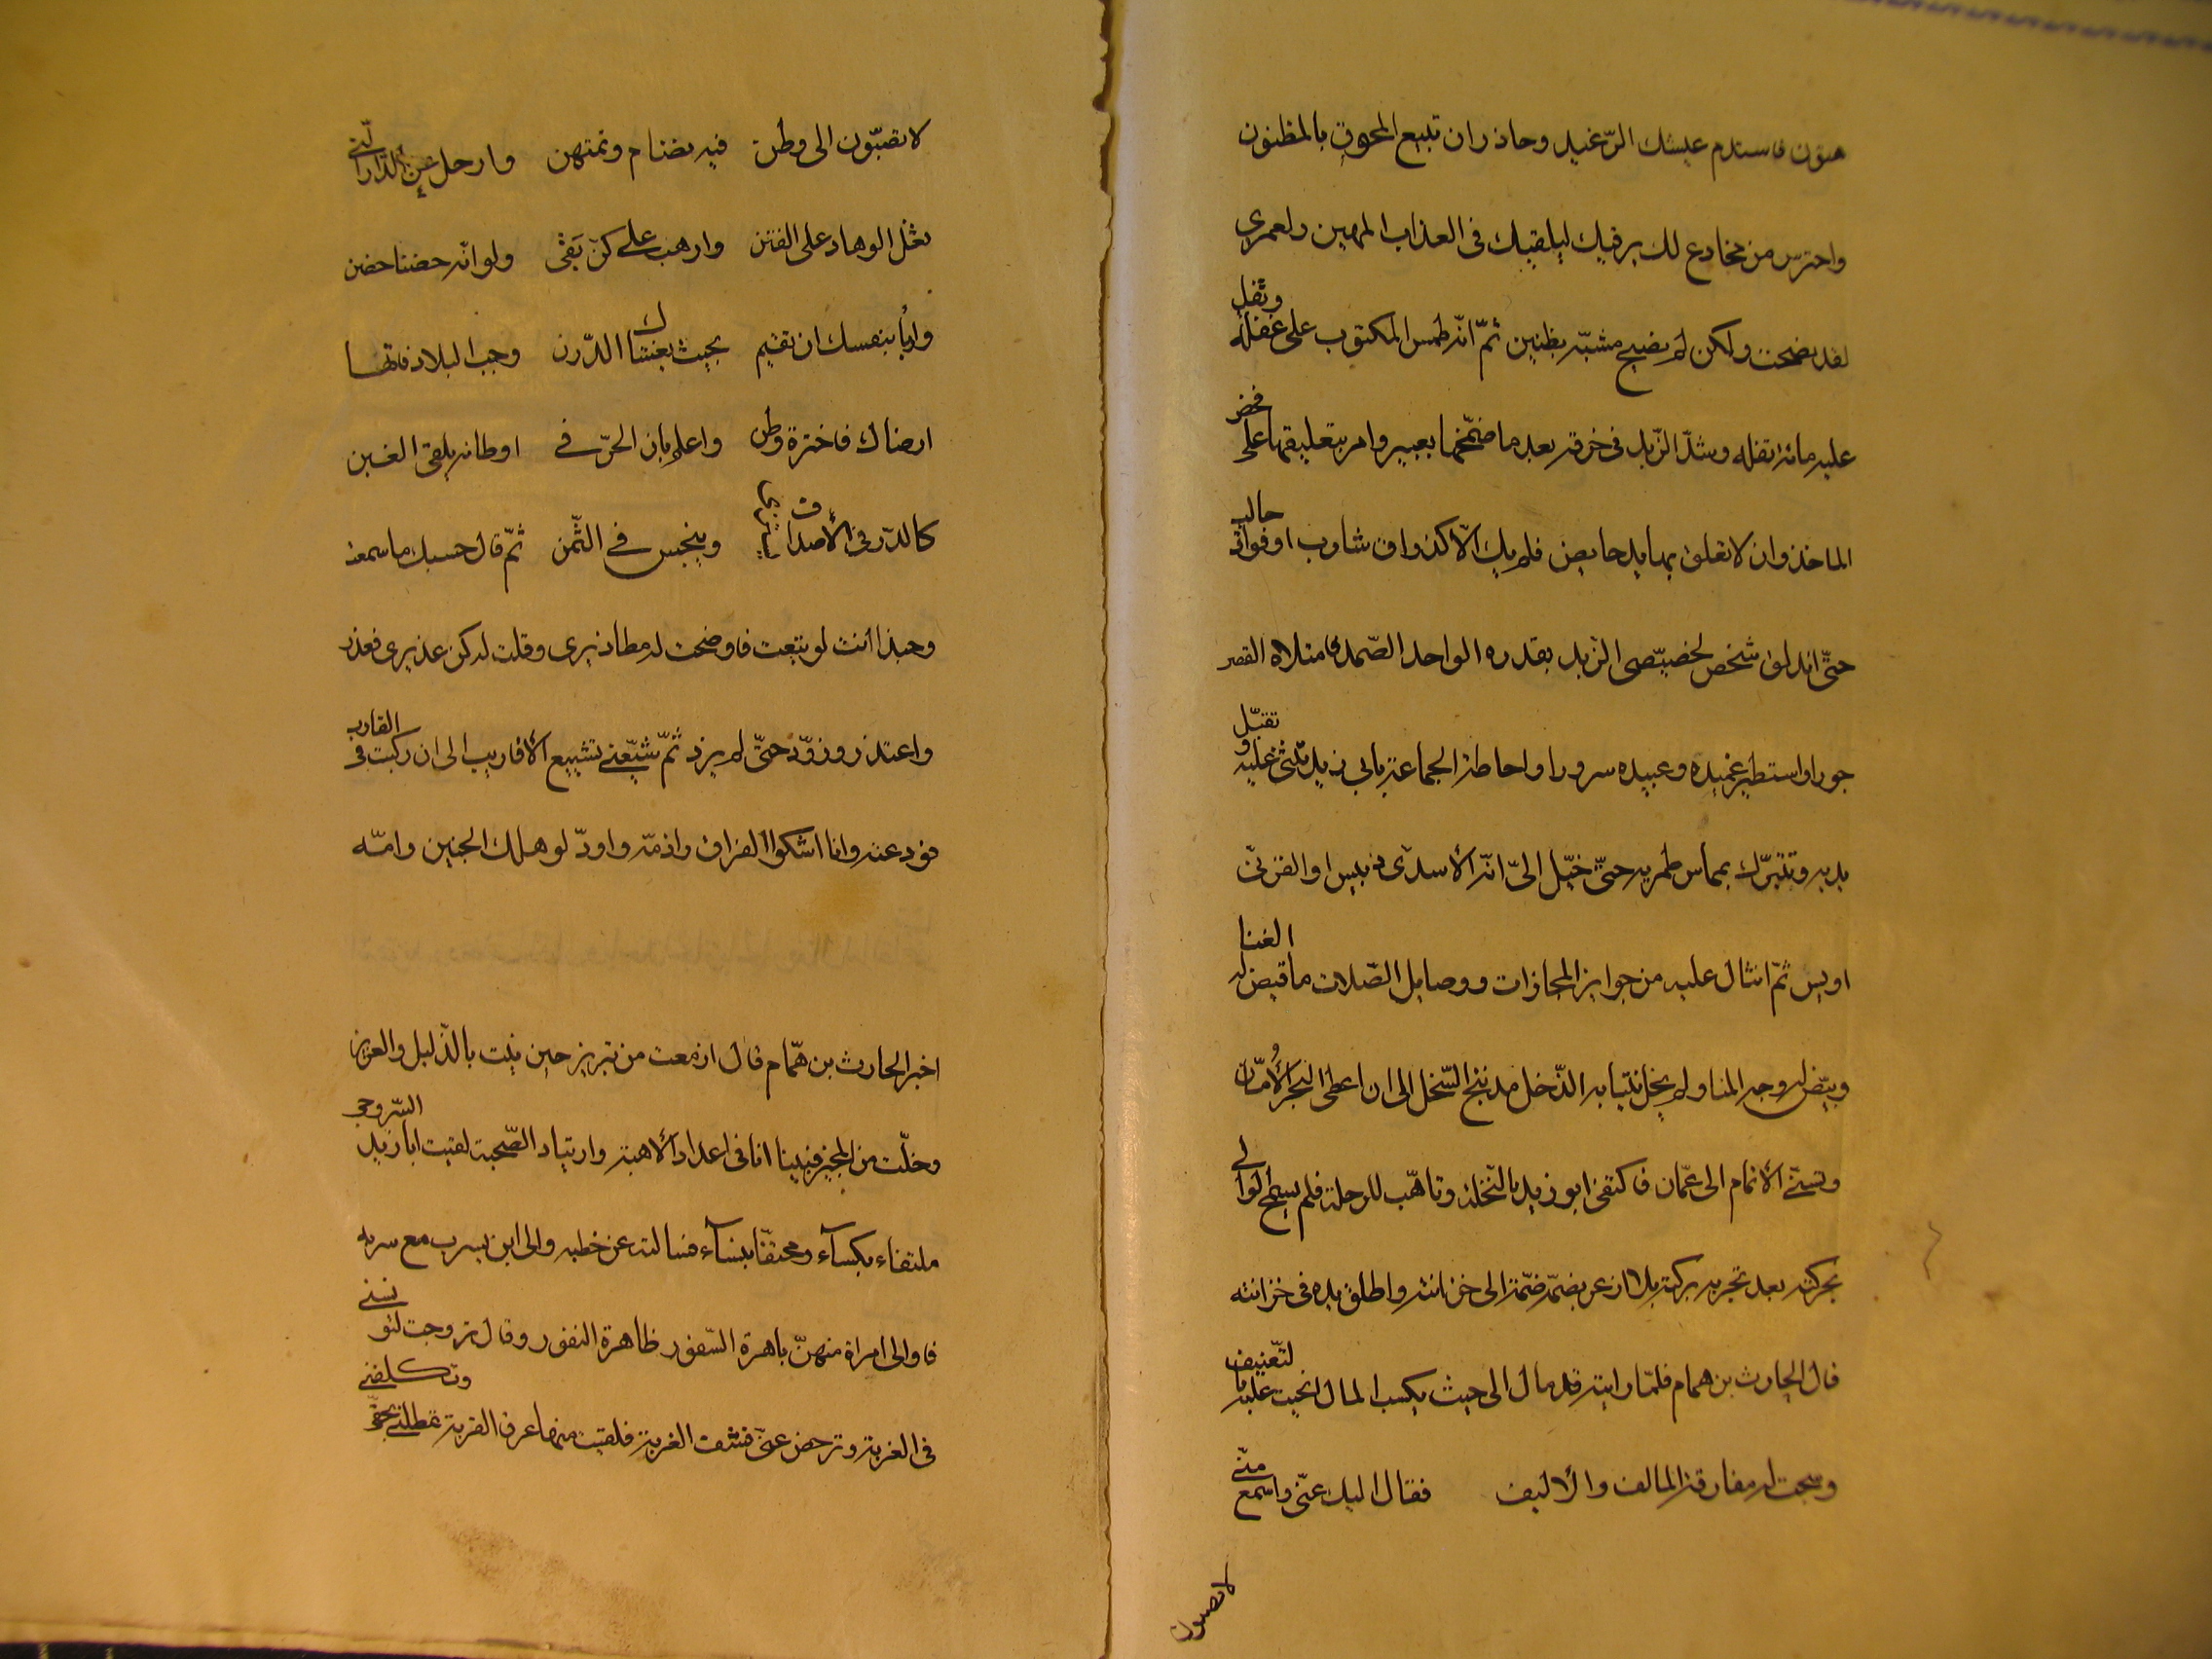 هتون فاستدم عيشك الرّغيد وحاذر ان تبيع المحقوق بالمظنون
واحترس من مخادع لك يرقيك ليلقيك فى العذاب المهين ولعمرى
لقد نصحت ولكن لم نصيح مشبّه بظنين ثمّ انّه طمس المكتوب على غفلة وتفل
عليه مائة تفلة وشدّ الزّبد فى خرقة بعد ما ضمّخها بعبير وامر بتعليقها على فخذ
الماخذ وان لا تعلق بها يد حايض فلم يك الّا كذواق شارب او فواق حالب
حتّى اندلق شخص لخصيّصى الزّبد بقدره الواحد الصّمد فامتلاه القصر
جورا واستطير عميده وعبيده سرورا واحاطة الجماعة بابى زيد تثنى عليه وتقبّل
يديه وتتبرّك بمماس طمريه حتّى خيّل الىّ انّه الاسدى دبيس او القرنىّ
اويس ثمّ انثال عليه من جوايز المجازات ووصايل الصّلات ما قيض له الغنا
وبيّض له وجه المنا ولم يخل ينتابه الدّخل مد نتج السّخل الى ان اعطى البحر الأمان
وتسنّى الاتمام الى عمّان فاكتفى ابو زيد بالنّحلة وتاهّب للرحلة فلم يسمح الوالى
بحركته بعد تجربة بركته بل اوعز بضمّه ضمّة الى خزانته واطلق يده فى خزانته
قال الحارث بن همام فلمّا رايته قد مال الى حيث يكسب المال انحيت عليه بالتّعنيف
وهجنت له مفارقة المالف والاليف فقال اليك عنّى واسمع منّى
لا تصبون
لا تصبّون الى وطن فيه يضام وتمتهن وارحل عن الدّار الّتى
تعلى الوهاد على القنن واهرب على كنّ يقى ولو انّه حضنا حضن
واربأ بنفسك ان تقيم بحيث يغشاك الدّرن وجب البلاد فايّها
ارضاك فاختره وطن واعلم بان الحرّ فى اوطانه يلقى الغبن
كالدّرّ فى الاصداف يبخس فى الثّمن ثمّ قال حسبك ما سمعت
وحبذا انت لو تبعت فاوضحت له معاذيرى وقلت له كن عذيرى فعذر
واعتذر وزوّد حتّى لم يزد ثمّ شيّعنى تشييع الاقاريب الى ان ركبت فى القارب
فودعته وانا اشكوا الفراق واذمّه واودّ لو هلك الجنين وامّه
اخبر الحارث بن همّام قال ازمعت من تبريز حين نبت بالذّليل والعزيز
وخلّت من المجيز فبينا انا فى اعداد الاهبة وارتياد الصّحبة لقيت ابا زيد السّروجى
ملتفاء بكسآء ومحتفّا بنسآء فسالته عن خطبه والى اين يسرب مع سربه
فاوالى امراة منهنّ باهرة السّفور ظاهرة النفور وقال تزوجت لتونسنى
فى الغربة وترحض عنّى قشف العزبة فلقيت منها عرق القربة تمطلنى بحقّى وتكلفنى